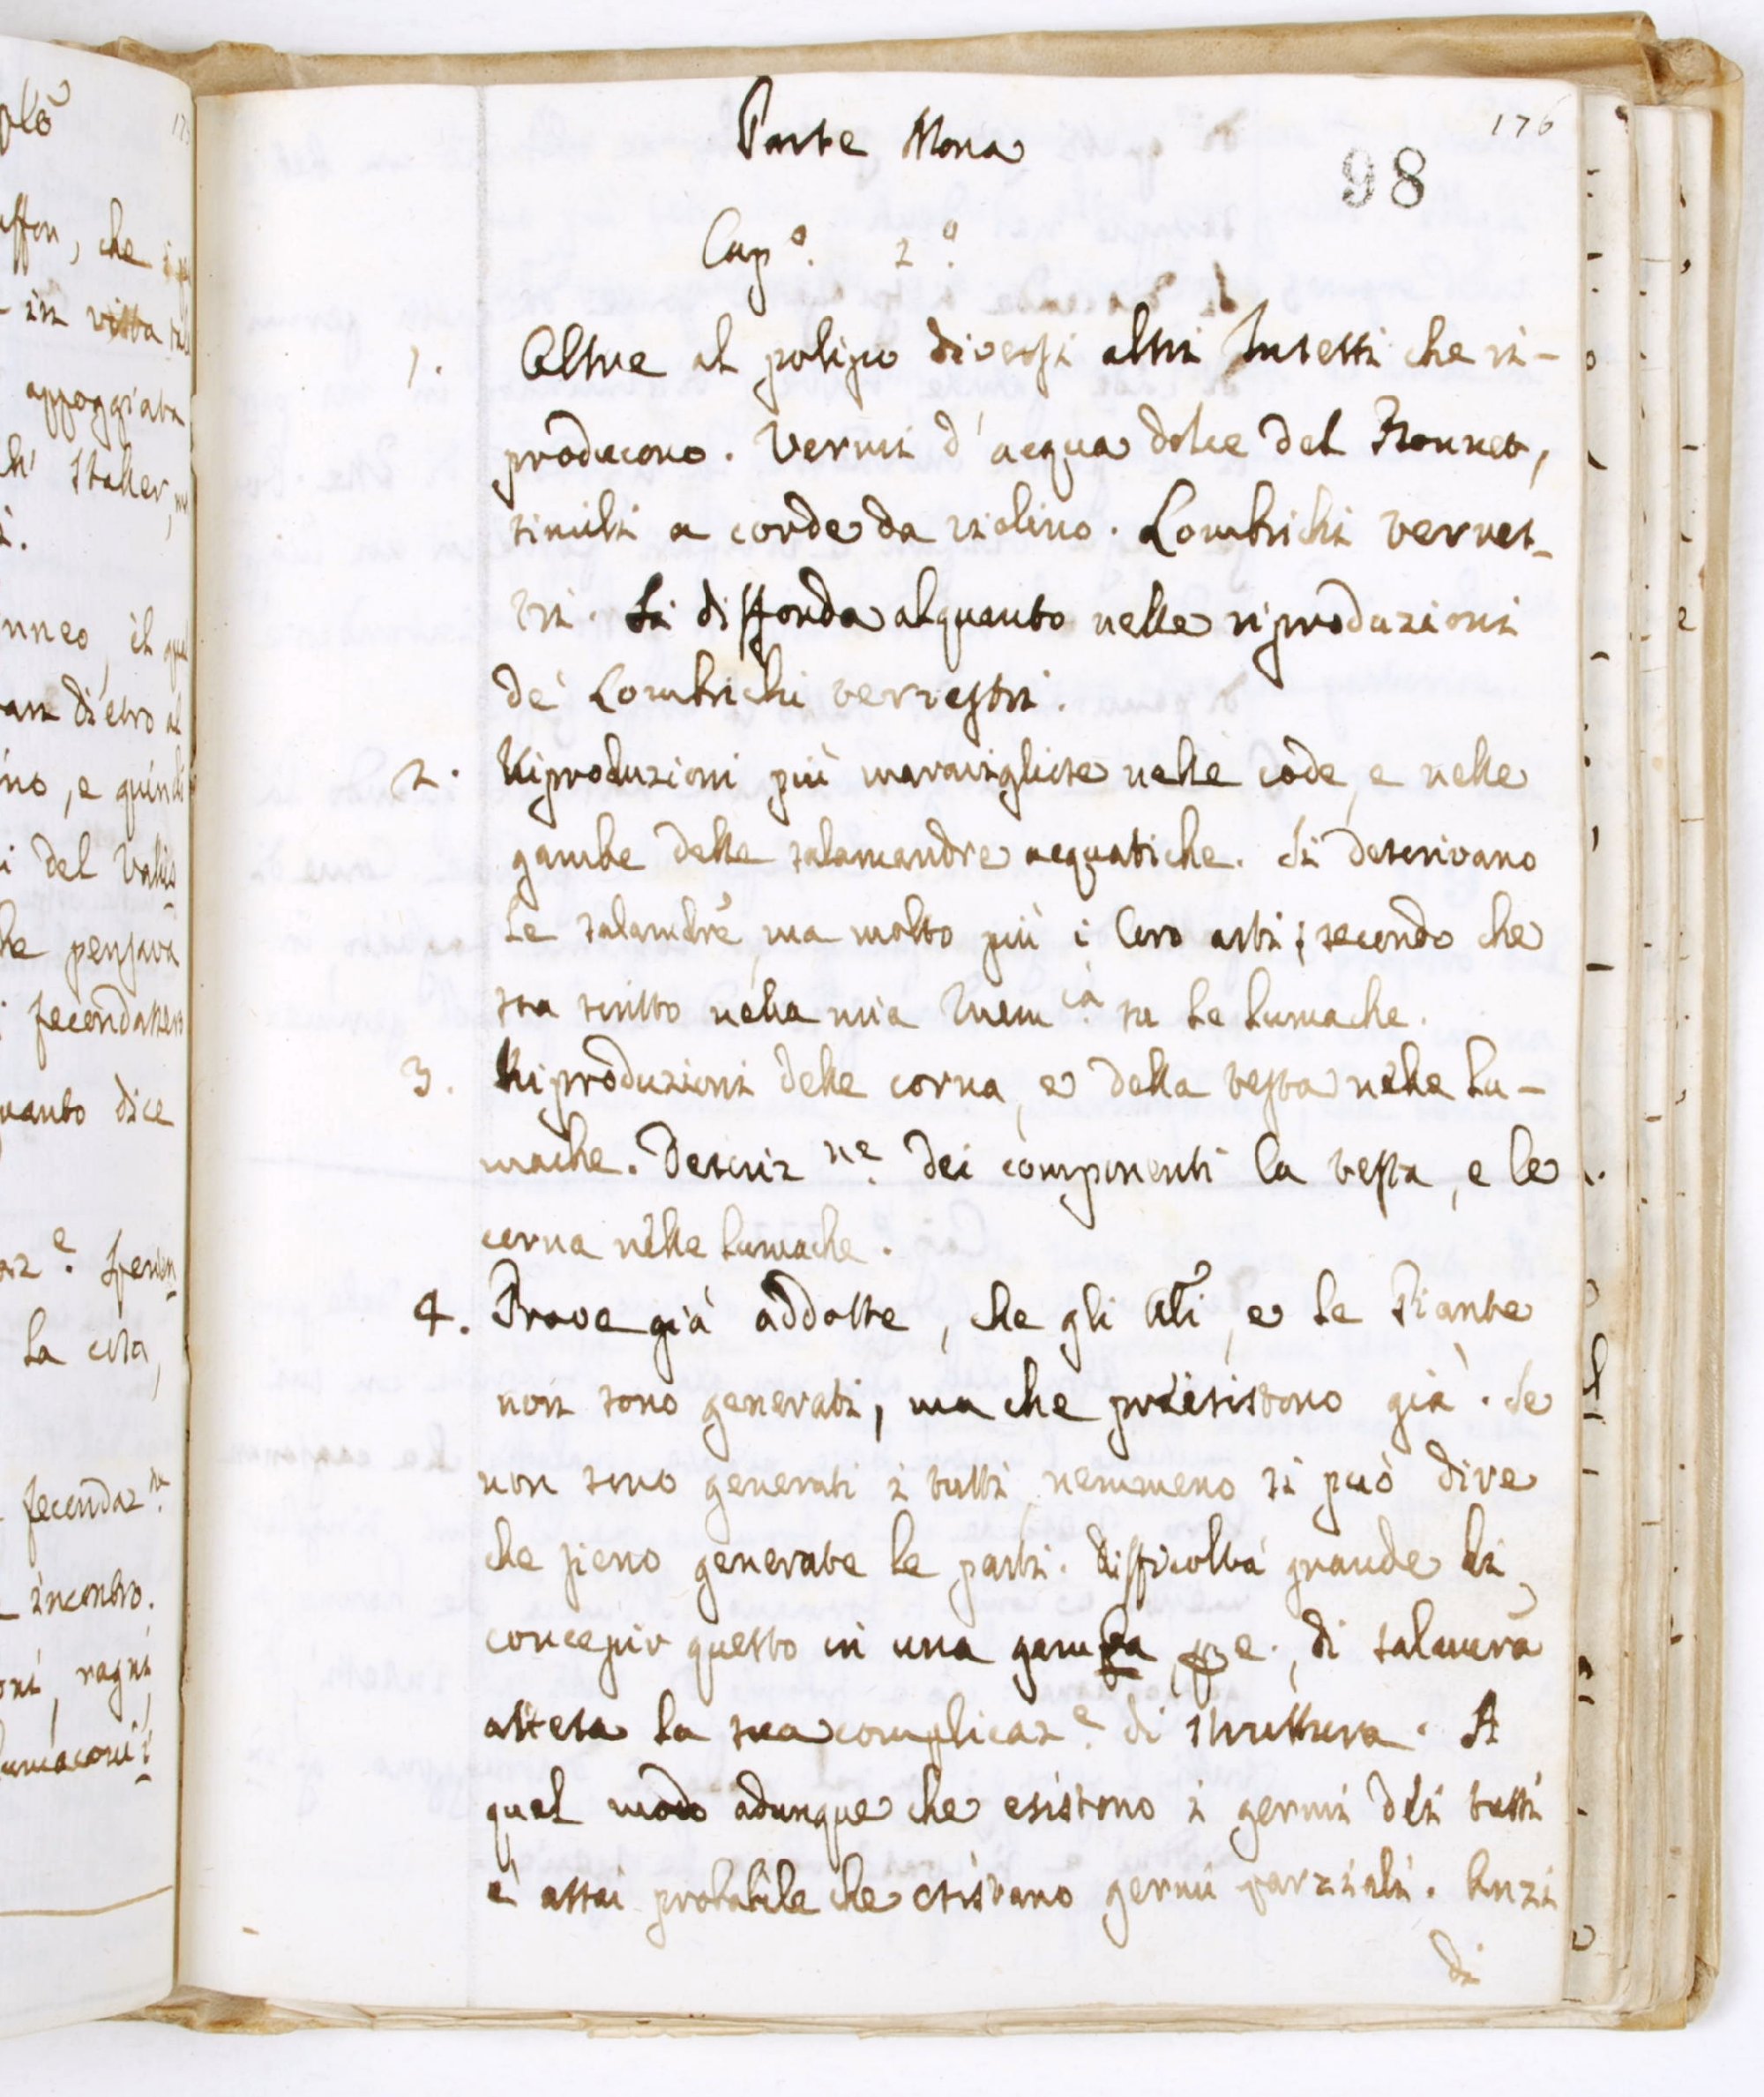 plō
ffon, che
in vista
appoggiata
ch' Haller,
nneo, il qual
ari dietro al
ino, e quindi
i del Valis
he pensava
fecondassero
quanto dice
az.e
La
fecondaz.ne
incontro.
ragni
lumaconi
176
98
Parte Nona
Cap.o 2.o
1. Oltre al polipo diversi altri Insetti che ri-
producono. Vermi d'acqua dolce del Bonnet,
simili a corde da violino. Lombrichi terres-
tri. Si diffonda alquanto nelle riproduzioni
de' Lombrichi terrestri.
2. Riproduzioni più maravigliose nelle code, e nelle
gambe delle salamandre acquatiche. Si descrivano
le salamdre, ma molto più i loro arti; secondo che
sta scritto nella mia Mem.ia su le Lumache.
3. Riproduzioni delle corna, e della testa nelle Lu-
mache. Descriz.ne dei componenti la testa, e le
corna nelle Lumache.
4. Prove già addotte, che gli Ali, e le Piante
non sono generati, ma che preesistono già. Se
non sono generati i tutti, nemmeno si può dire
che sieno generate le parti. Difficoltà grande di
concepir questo in una gamba p. e., di salamra
attesa la sua complicaz.e di struttura. A
quel modo adunque che esistono i germi dei tutti
è assai probabile che esistano germi parziali. Anzi
di